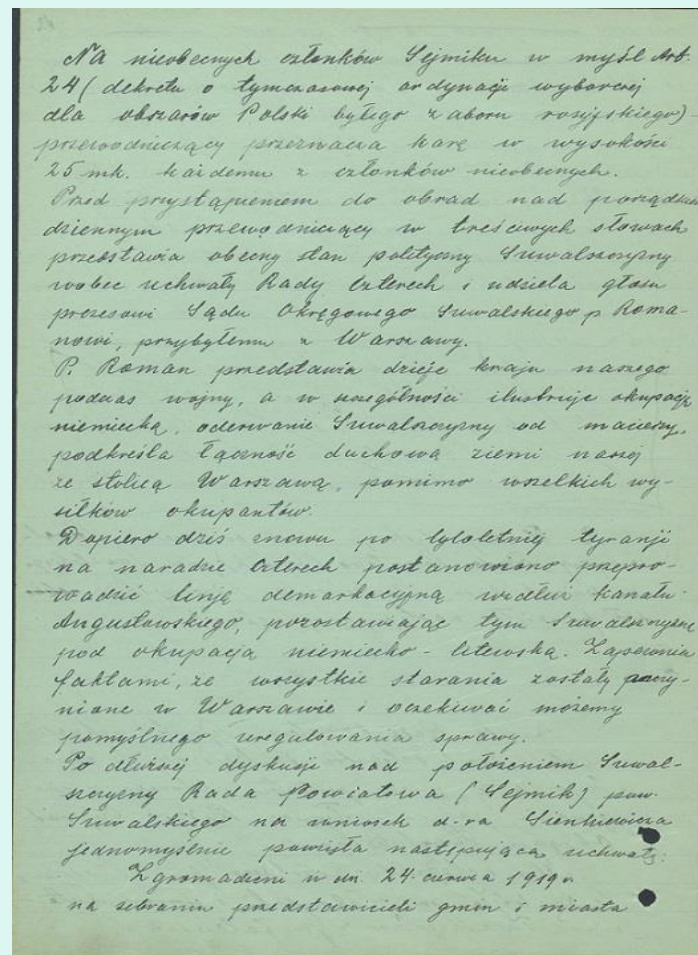 Na nieobecnych członków Sejmiku w myśl Art.
24 (dekretu o tymczasowej ordynacji wyborczej
dla obszarów Polski byłego zaboru rosyjskiego) -
przewodniczący przeznacza karę w wysokości
25 mk. każdemu z członków nieobecnych.
Przed przystąpieniem do obrad nad porządkiem
dziennym przewodniczący w treściwych słowach
przedstawia obecny stan polityczny Suwalszczyzny
wobec uchwały Rady Czterech i udziela głosu
prezesowi Sądu Okręgowego Suwalskiego p. Roma-
nowi, przybyłemu z Warszawy.
P. Roman przedstawia dzieje kraju naszego
podczas wojny, a w szczególności ilustruje okupację
niemiecką, oderwanie Suwalszczyzny od macierzy,
podkreśla łączność duchową ziemi naszej
ze stolicą Warszawą, pomimo wszelkich wy-
siłków okupantów.
Dopiero dziś znowu po tyloletniej tyranji
na naradzie czterech postanowiono przepro-
wadzić linję demarkacyjną wzdłuż kanału
Augustowskiego, pozostawiając tym Suwalszczyznę
pod okupacją niemiecko - litewską. Zapewnia
faktami, że wszystkie starania zostały poczy-
nione w Warszawie i oczekiwać możemy
pomyślnego uregulowania sprawy.
Po dłuższej dyskusji nad położeniem Suwal-
szczyzny Rada Powiatowa (Sejmik) pow.
Suwalskiego na wniosek d-ra Sienkiewicza
jednomyślnie powzięła następującą uchwałę:
Zgromadzeni w dn. 24. czerwca 1919 r.
na zebraniu przedstawicieli gmin i miasta